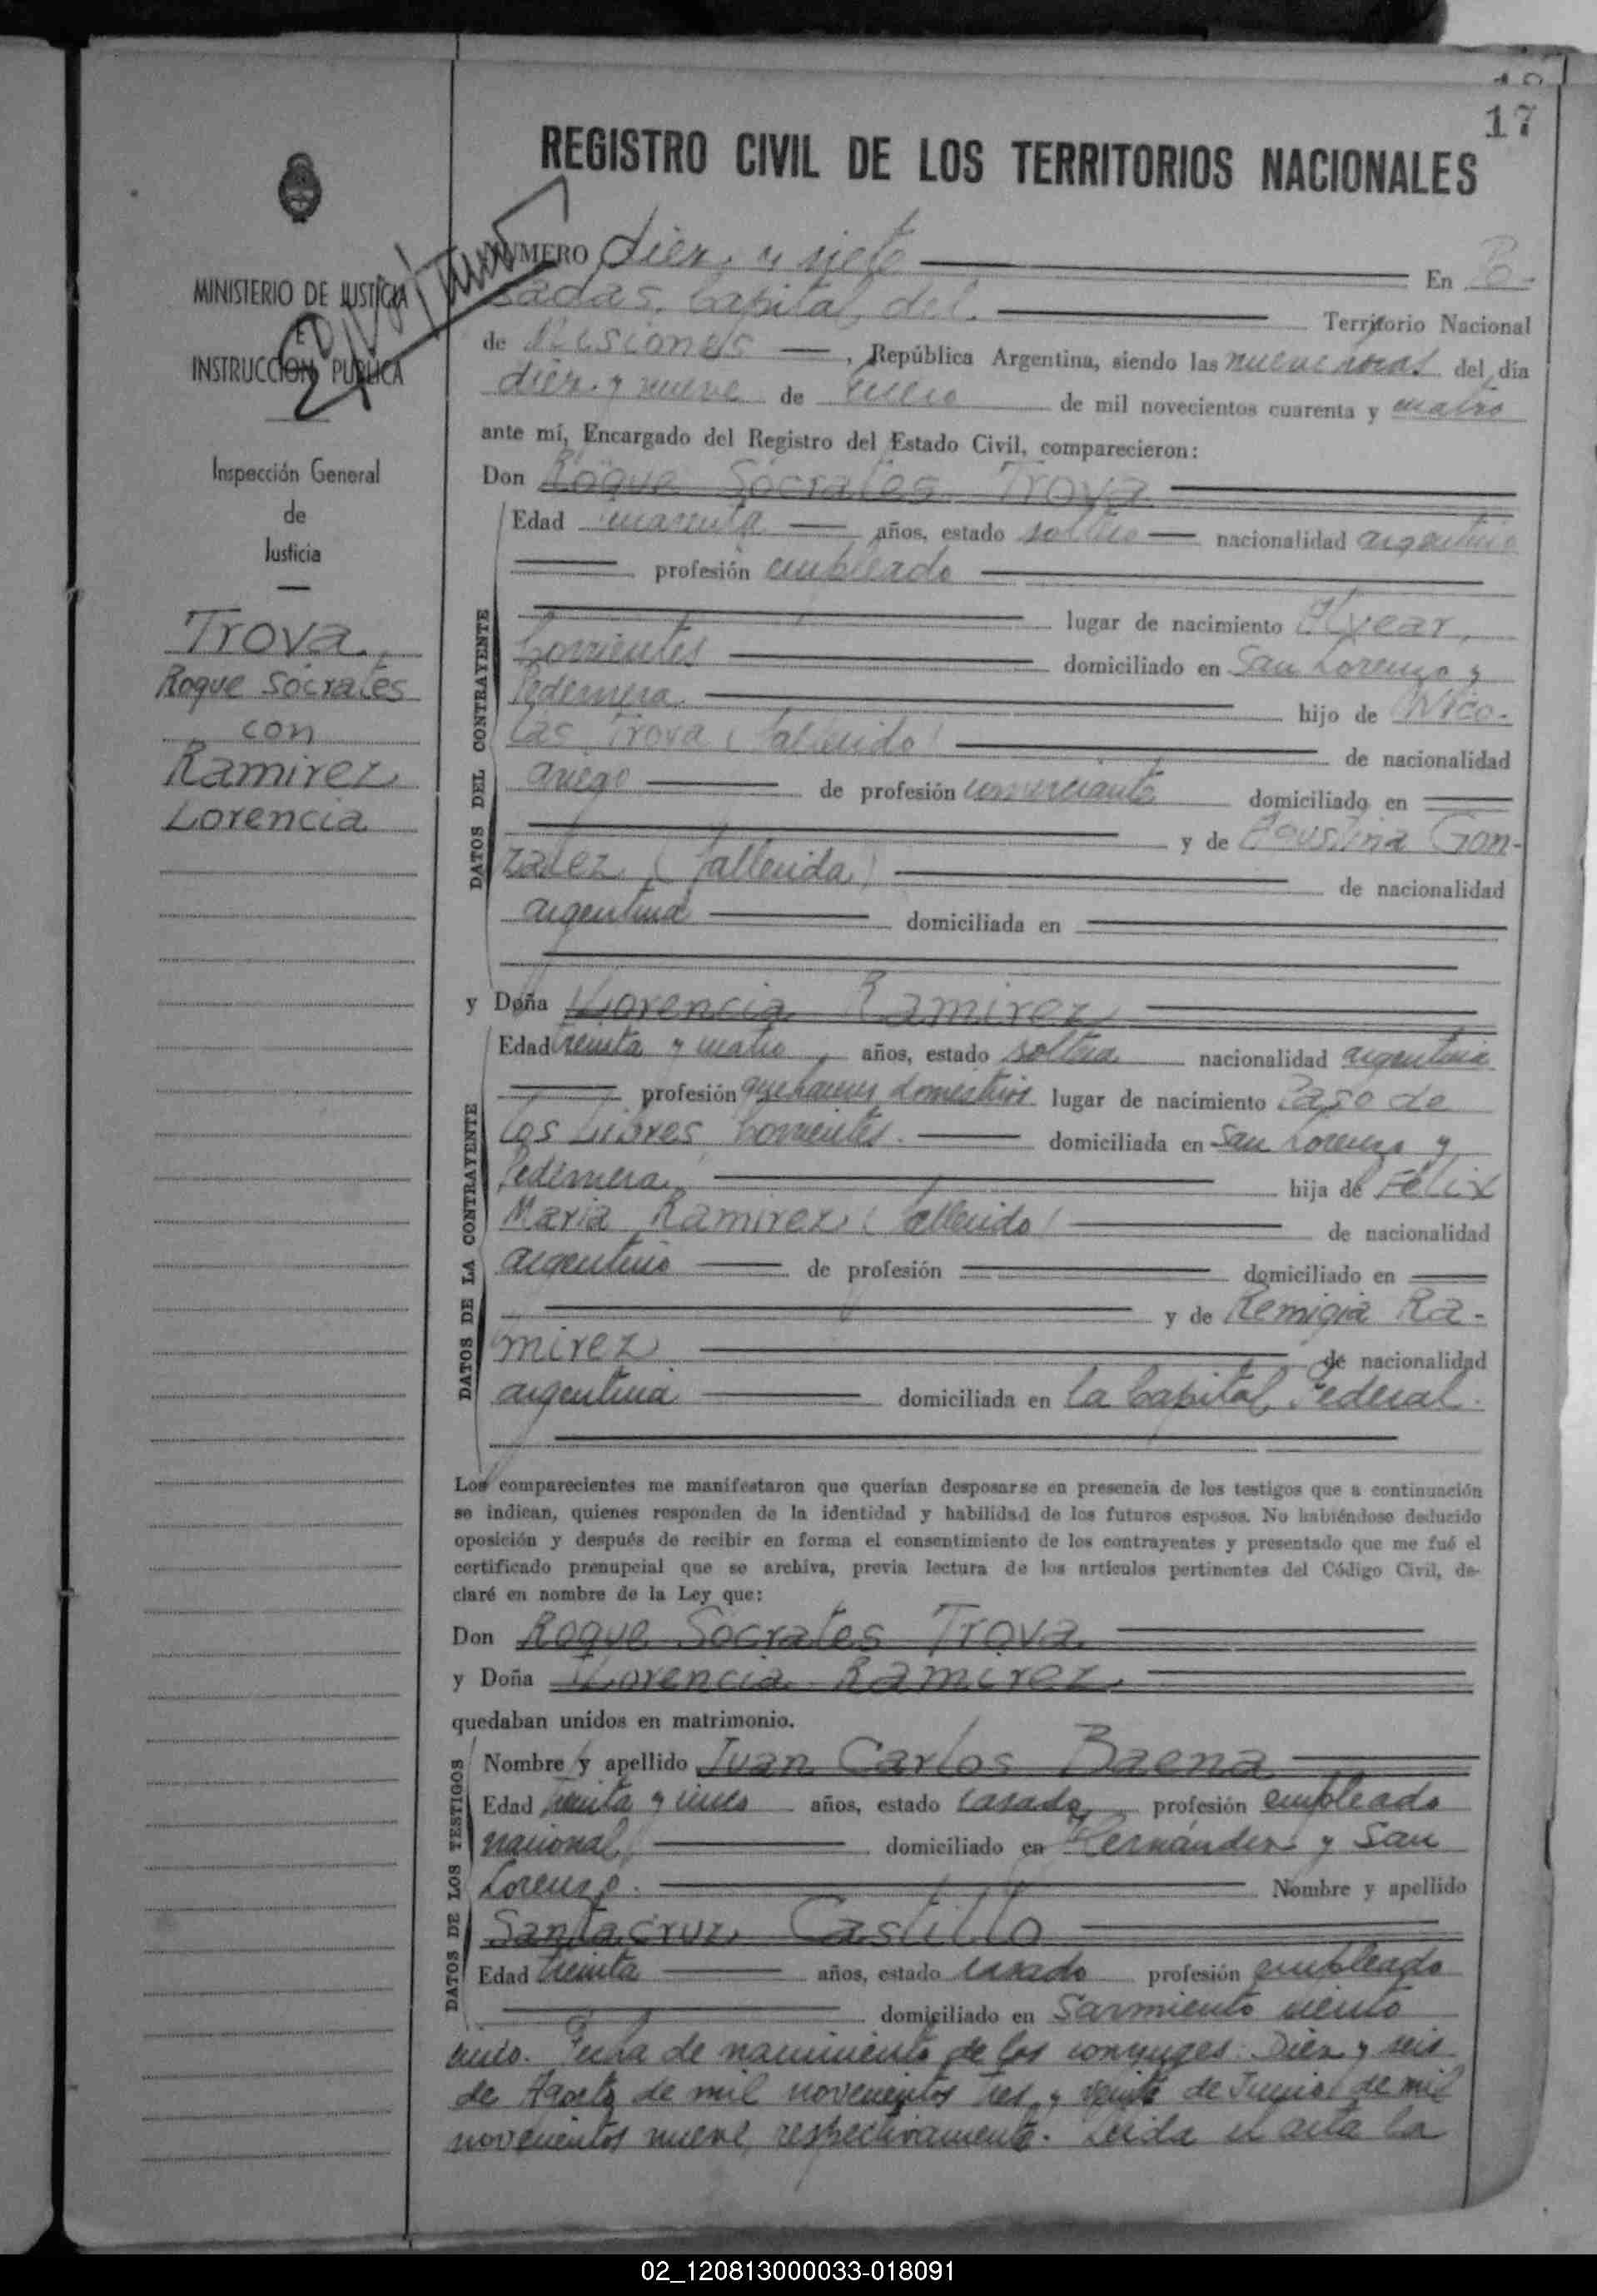 17
REGISTRO CIVIL DE LOS TERRITORIOS NACIONALES
MINISTERIO DE JUSTICIA
E
INSTRUCCION PUBLICA
Inspección General
de
Justicia
Trova
Roque Sócrates
con
Ramirez
Lorencia
NUMERO diez y siete En Po-
sadas, Capital del Territorio Nacional
de Misiones, República Argentina, siendo las nueve horas del día
diez y nueve de Julio de mil novecientos cuarenta y cuatro
ante mí, Encargado del Registro del Estado Civil, comparecieron:
Don Roque Sócrates Trova
DATOS DEL CONTRAYENTE
Edad cuarenta años, estado soltero nacionalidad argentino
profesión empleado
lugar de nacimiento Alvear,
Corrientes domiciliado en San Lorenzo y
Pedernera hijo de Nico-
las Trova (fallecido) de nacionalidad
griego de profesión comerciante domiciliado en
y de Agustina Gon-
zalez (fallecida) de nacionalidad
argentina domiciliada en
y Doña Lorencia Ramirez
DATOS DE LA CONTRAYENTE
Edad treinta y cuatro, años, estado soltera nacionalidad argentina
profesión quehaceres domésticos lugar de nacimiento Paso de
los Libres, Corrientes. domiciliada en San Lorenzo y
Pedernera hija de Félix
Maria Ramirez (fallecido) de nacionalidad
argentino de profesión domiciliado en
y de Remigia Ra-
mirez de nacionalidad
argentina domiciliada en la Capital Federal.
Los comparecientes me manifestaron que querían desposarse en presencia de los testigos que a continuación
se indican, quienes responden de la identidad y habilidad de los futuros esposos. No habiéndose deducido
oposición y después de recibir en forma el consentimiento de los contrayentes y presentado que me fué el
certificado prenupcial que se archiva, previa lectura de los artículos pertinentes del Código Civil, de-
claré en nombre de la Ley que:
Don Roque Sócrates Trova
y Doña Lorencia Ramirez
quedaban unidos en matrimonio.
DATOS DE LOS TESTIGOS
Nombre y apellido Juan Carlos Baena
Edad treinta y cinco años, estado casado, profesión empleado
nacional, domiciliado en Hernández y San
Lorenzo. Nombre y apellido
Santacruz Castillo
Edad treinta años, estado casado profesión empleado
domiciliado en Sarmiento ciento
cinco. Fecha de nacimiento de los conyuges: Diez y seis
de Agosto de mil novecientos tres y veinte de Junio de mil
novecientos nueve, respectivamente. Leida el acta la
02_120813000033-018091